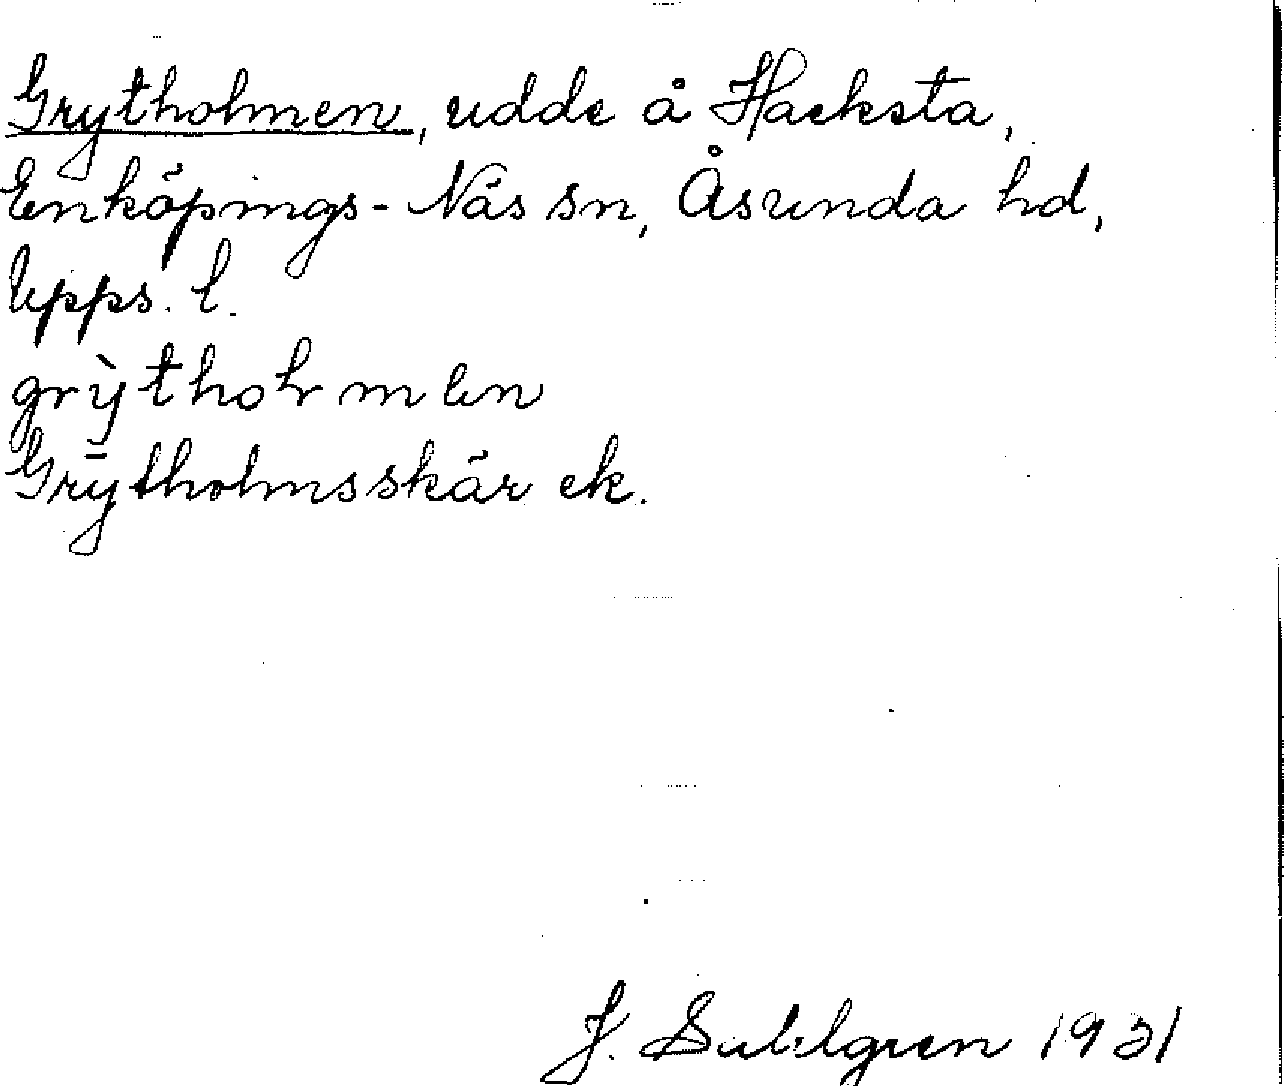 Grytholmen, udde å Hacksta,
Enköpings-Näs sn, Åsunda hd,
Upps. l.
grỳtholmen
Grȳtholmsskär ek.
J. Sahlgren 1931